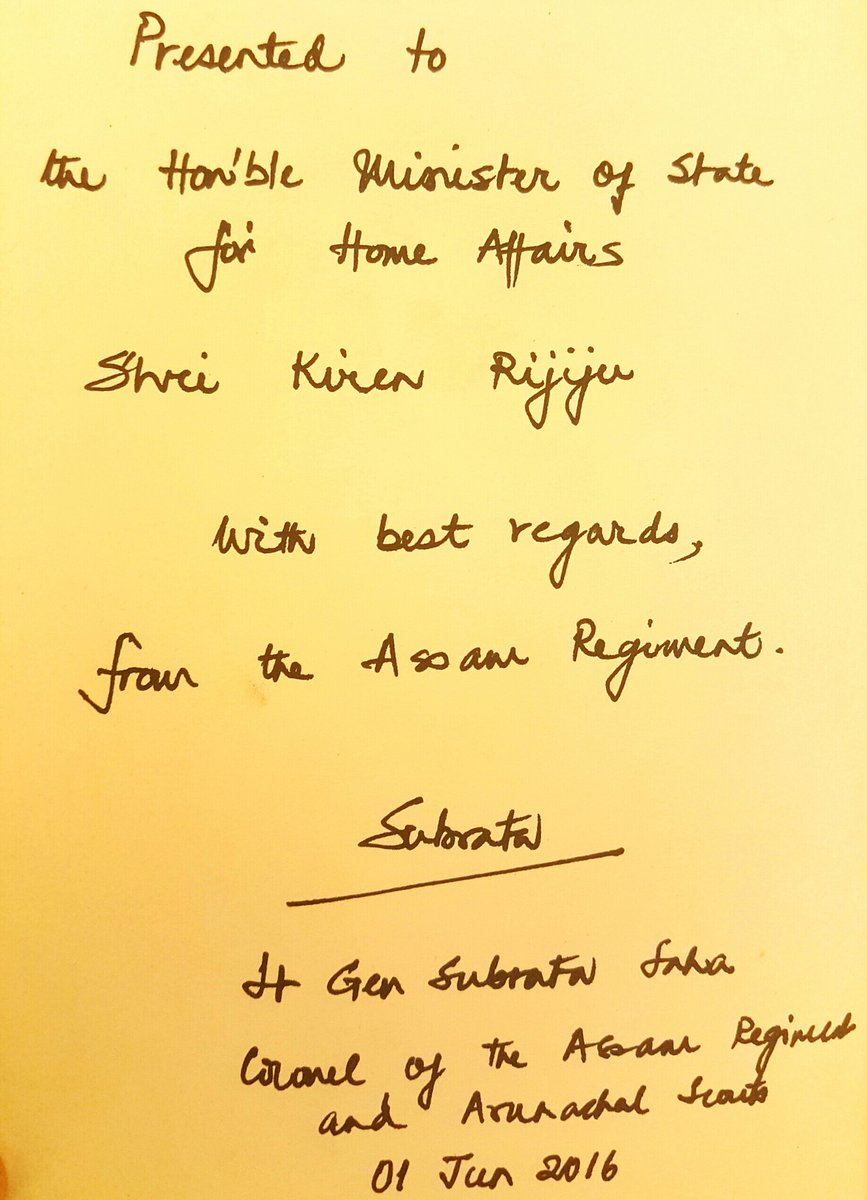 Presented to
the Hon'ble Minister of State
for Home Affairs
Shri Kiren Rijiju
With best regards,
from the Assam Regiment.
Subrata
Lt Gen Subrata Saha
Colonel of the Assam Regiment
and Arunachal Scouts
01 Jun 2016